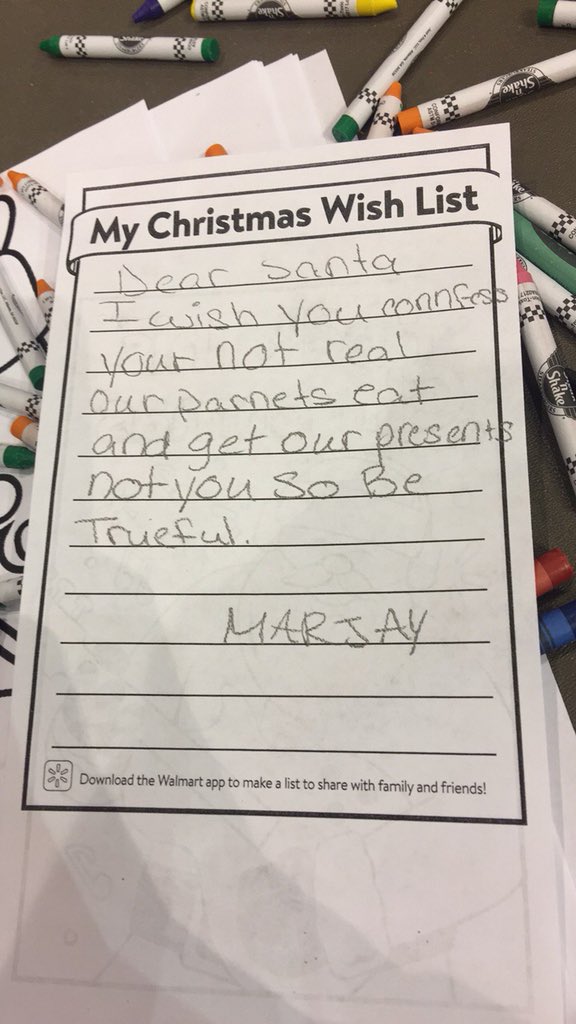 My Christmas Wish List
Dear Santa
I wish you connfess
your not real
our parnets eat
and get our presents
not you So Be
Trueful.
MARJAY
Download the Walmart app to make a list to share with family and friends!
Shake
Shake
Shake